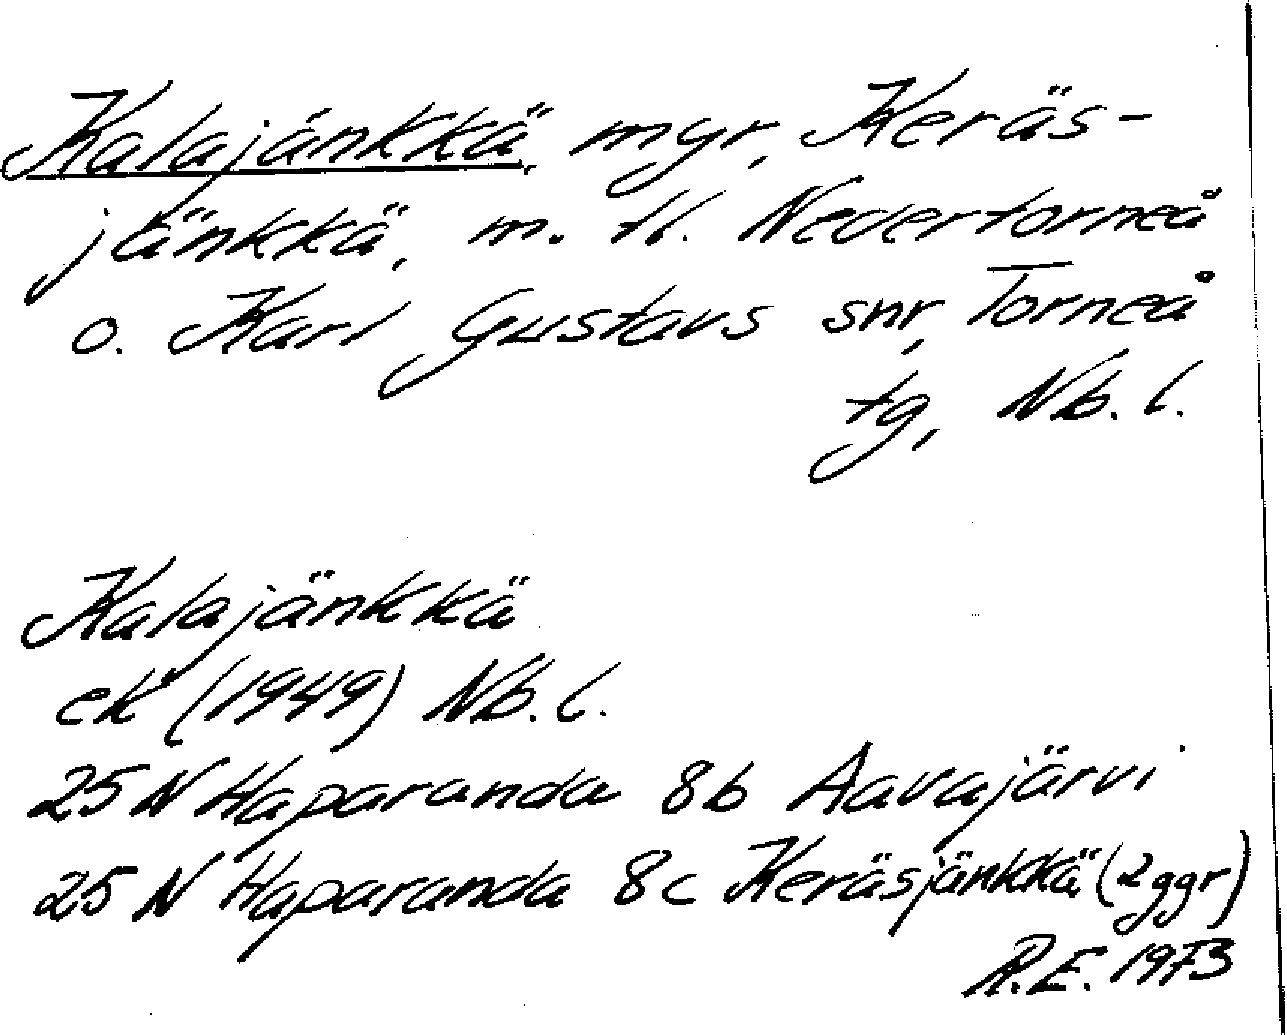 Kalajänkkä, myr, Keräs-
jänkkä, m. fl. Nedertorneå
o. Karl Gustavs snr, Torneå
tg, Nb. l.
Kalajänkkä
ek (1949) Nb. l.
25 N Haparanda 8b Aavajärvi
25 N Haparanda 8c Keräsjänkkä (2 ggr)
R.E. 1973